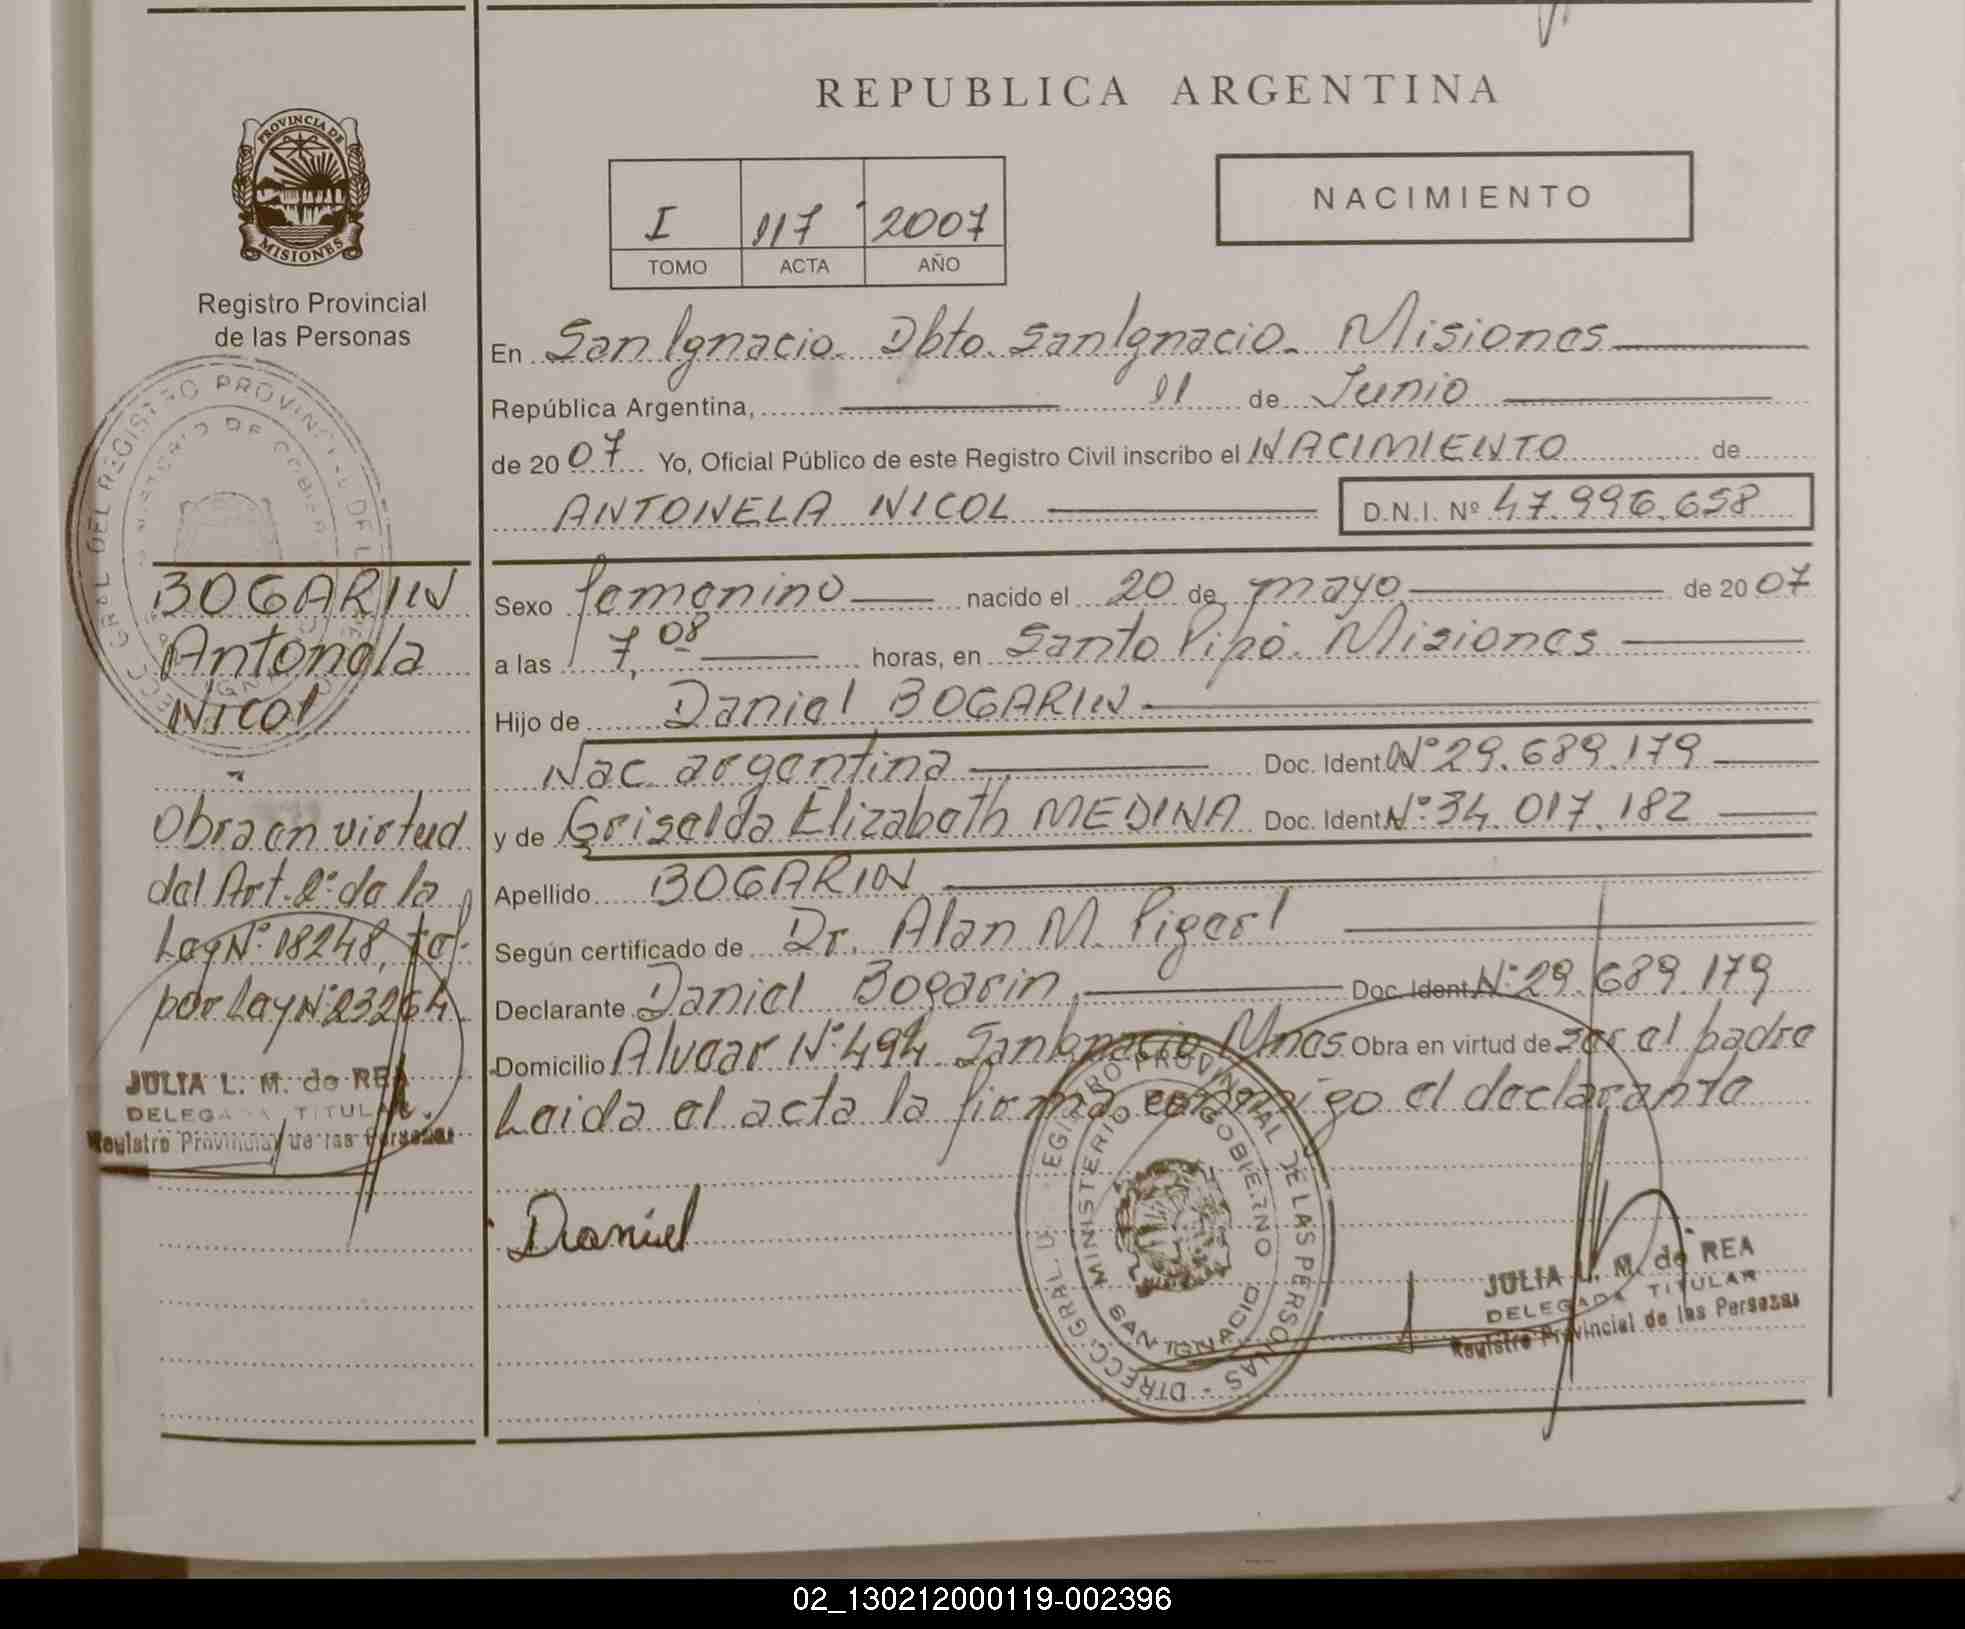 REPUBLICA ARGENTINA
PROVINCIA DE
MISIONES
Registro Provincial
de las Personas
NACIMIENTO
I 117 2007
TOMO ACTA AÑO
En San Ignacio. Dpto. San Ignacio. Misiones
República Argentina, 11 de Junio
de 2007 Yo, Oficial Público de este Registro Civil inscribo el NACIMIENTO de
ANTONELA NICOL D.N.I. Nº 47.996.658
Sexo femenino nacido el 20 de mayo de 2007
a las 7,08 horas, en Santo Pipó. Misiones
Hijo de Daniel BOGARIN
Nac. argentina Doc. Ident. Nº 29.689.179
y de Griselda Elizabeth MEDINA Doc. Ident. Nº 34.017.182
Apellido BOGARIN
Según certificado de Dr. Alan M.
Declarante Daniel Bogarin, Doc. Ident. Nº 29.689.179
Domicilio Alvear Nº 494 San Ignacio Mnes Obra en virtud de ser el padre
Leida el acta la firma conmigo el declarante
Daniel
BOGARIN
Antonela
Nicol
Obra en virtud
del Art. 2º de la
Ley Nº 18248,
por Ley Nº 23264
JULIA L. M. de REA
DELEGADA TITULAR
Registro Provincial de las Personas
DIRECC. GRAL. DEL REGISTRO PROVINCIAL DE LAS PERSONAS
MINISTERIO DE GOBIERNO
SAN IGNACIO
JULIA L. M. de REA
DELEGADA TITULAR
Registro Provincial de las Personas
02_130212000119-002396